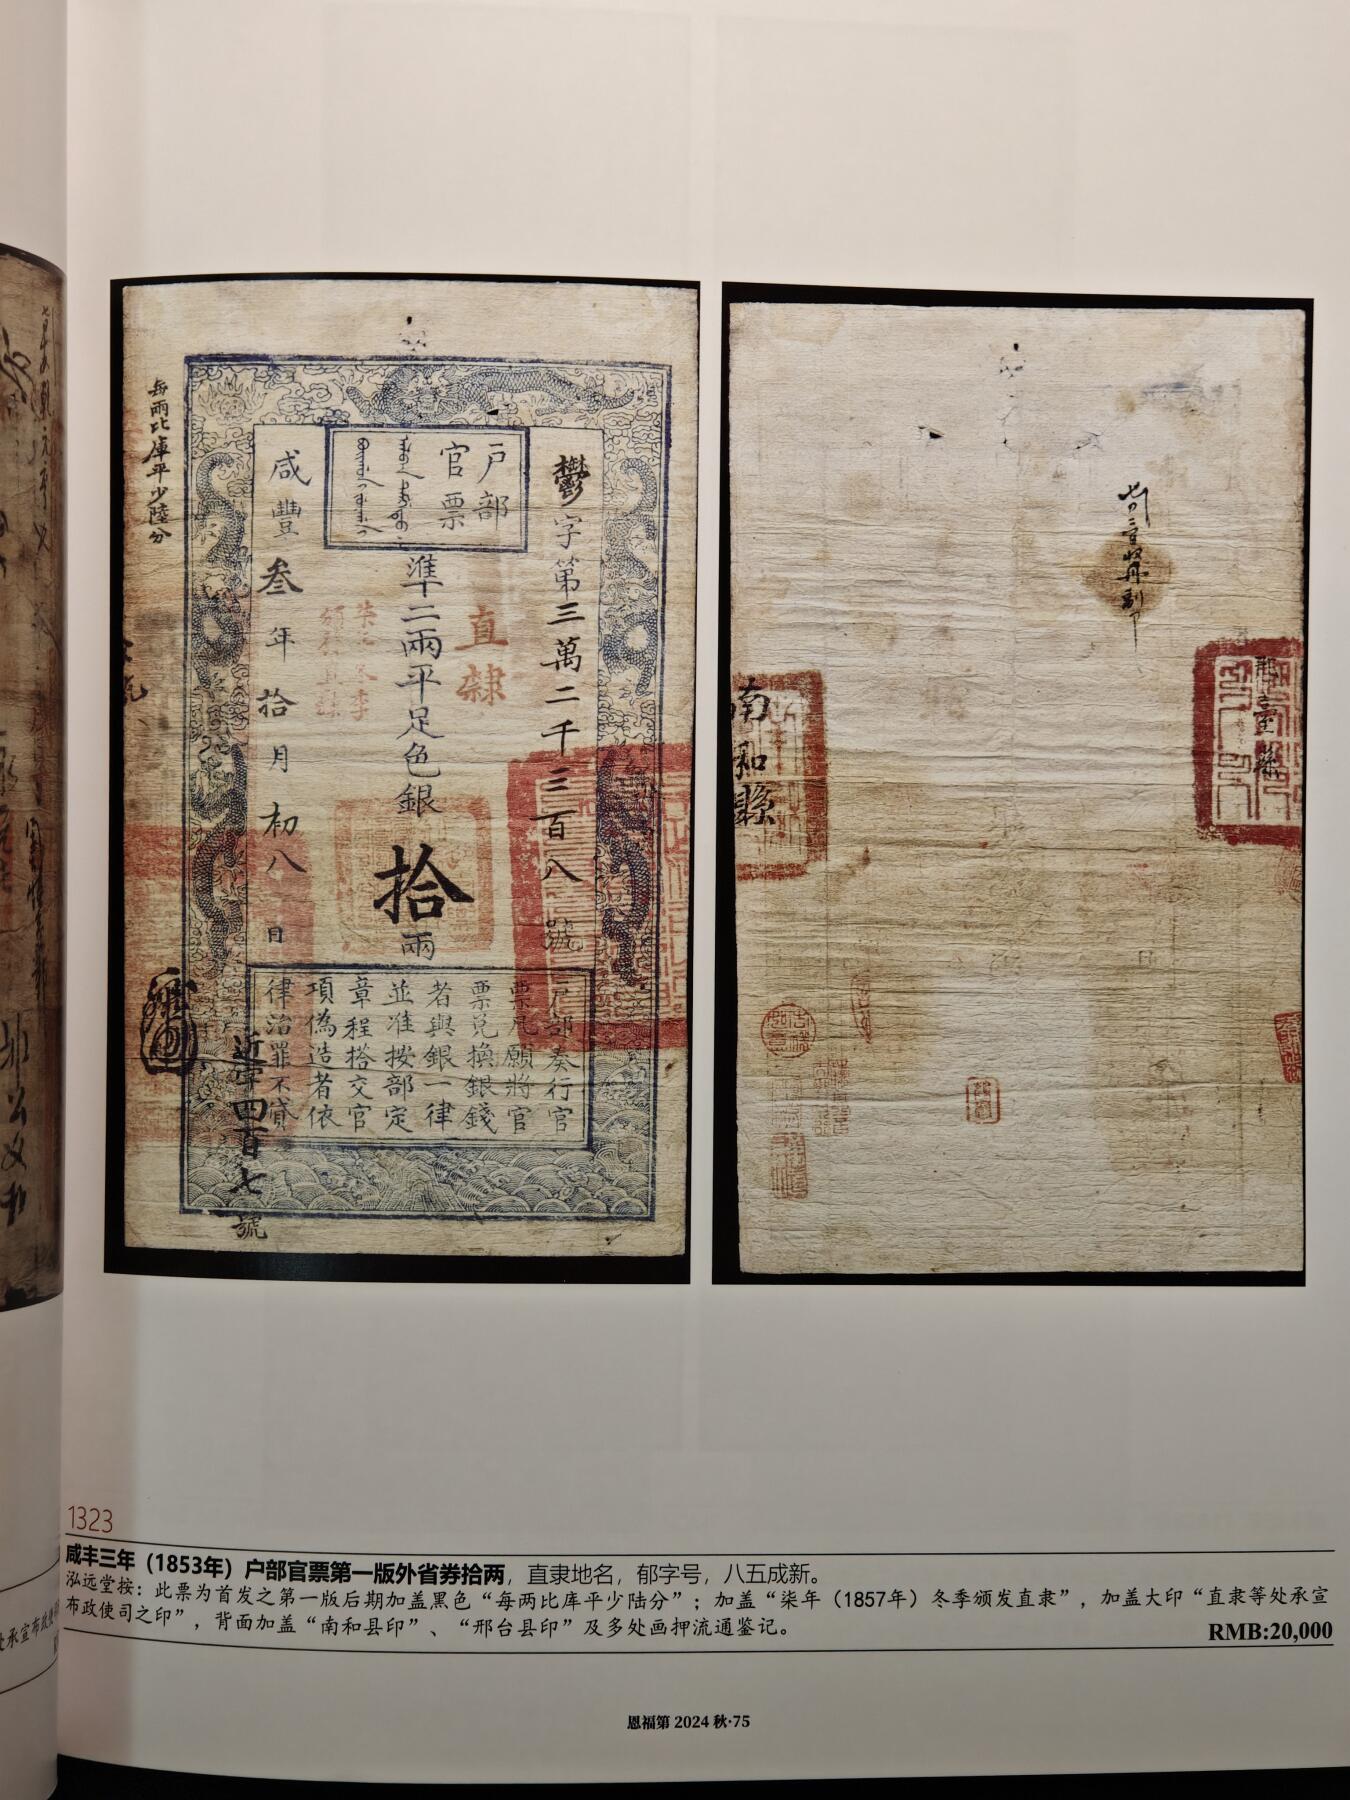 每兩比庫平少陸分
戶部
官票
鬱字第三萬二千三百八號
準二兩平足色銀拾兩
直隸
柒年冬季
頒發直隸
咸豐叁年拾月初八日
戶部奏行官
票凡願將官
票兌換銀錢
者與銀一律
並准按部定
章程搭交官
項偽造者依
律治罪不貸
近字四百七號
南和縣
邢臺縣
1323
咸丰三年（1853年）户部官票第一版外省券拾两，直隶地名，郁字号，八五成新。
泓远堂按：此票为首发之第一版后期加盖黑色“每两比库平少陆分”；加盖“柒年（1857年）冬季颁发直隶”，加盖大印“直隶等处承宣
布政使司之印”，背面加盖“南和县印”、“邢台县印”及多处画押流通鉴记。
RMB:20,000
恩福第 2024 秋·75